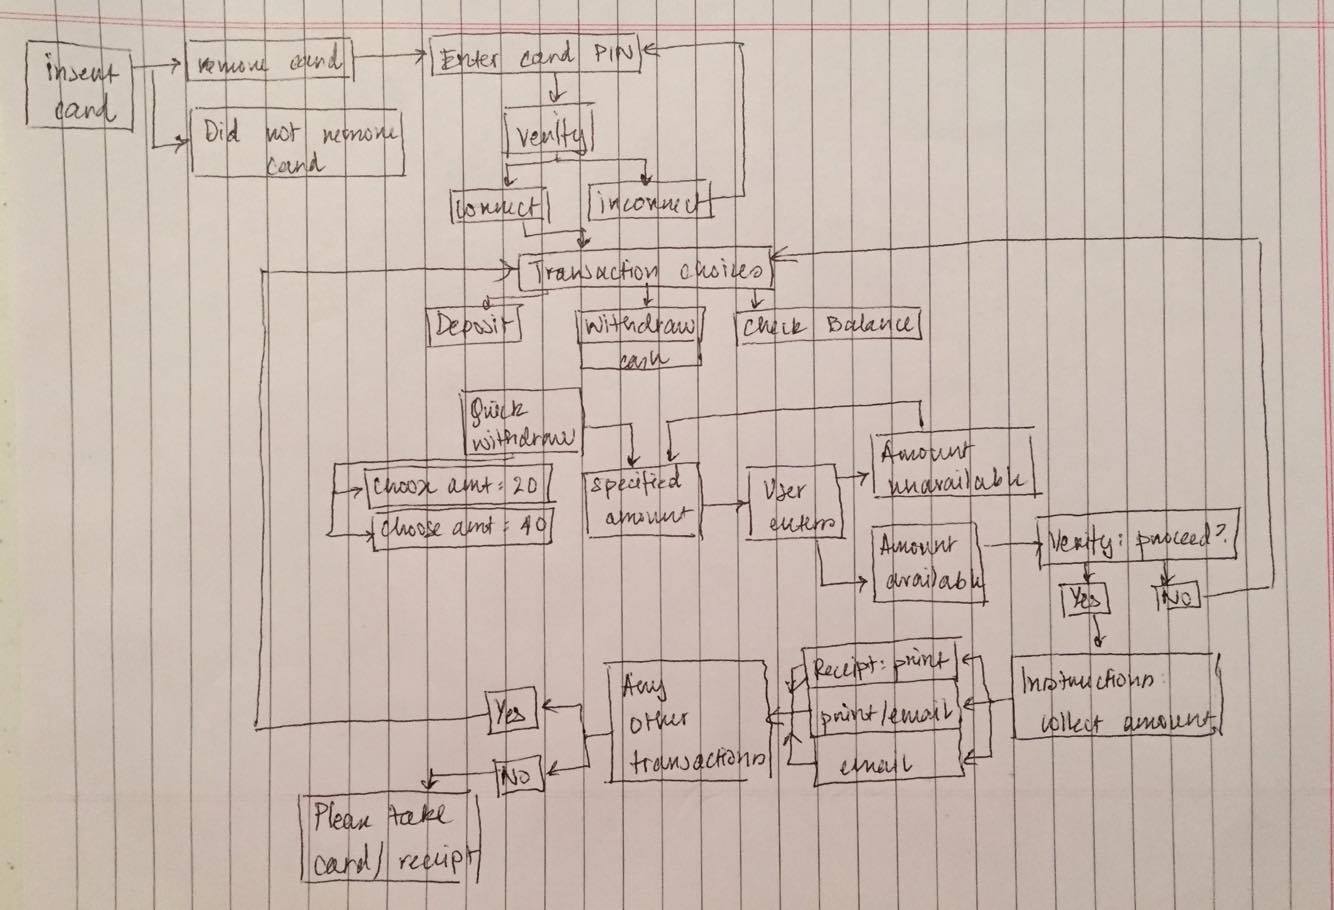 insert
card
remove card
Enter card PIN
Did not remove
card
Verify
correct
incorrect
Transaction choices
Deposit
Withdraw
cash
Check Balance
Quick
withdraw
Choose amt: 20
Choose amt: 40
specified
amount
User
enters
Amount
unavailable
Amount
available
Verify: proceed?
Yes
No
Instructions:
collect amount
Receipt: print
print/email
email
Any
other
transactions
Yes
No
Please take
card/ receipt